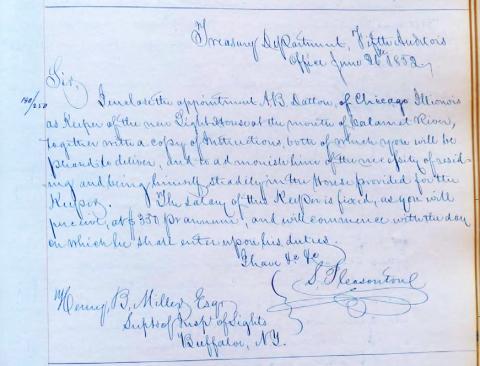 Treasury Department, Fifth Auditors
Office June 26th 1852,
Sir,
140/250
I enclose the appointment A.B. Dutton, of Chicago Illinois
as Keeper of the new Light House at the mouth of Calamet River,
together with a copy of Instructions, both of which you will be
pleased to deliver, and to admonish him of the necessity of resid-
ing and being himself steadily in the House provided for the
Keeper. The salary of this Keeper is fixed, as you will
perceive, at $350 pr annum, and will commence with the day
on which he shall enter upon his duties.
I have &c &c
S. Pleasonton
Henry, B. Miller Esqr
Supt of Insp. of Lights
Buffaloe, N.Y.